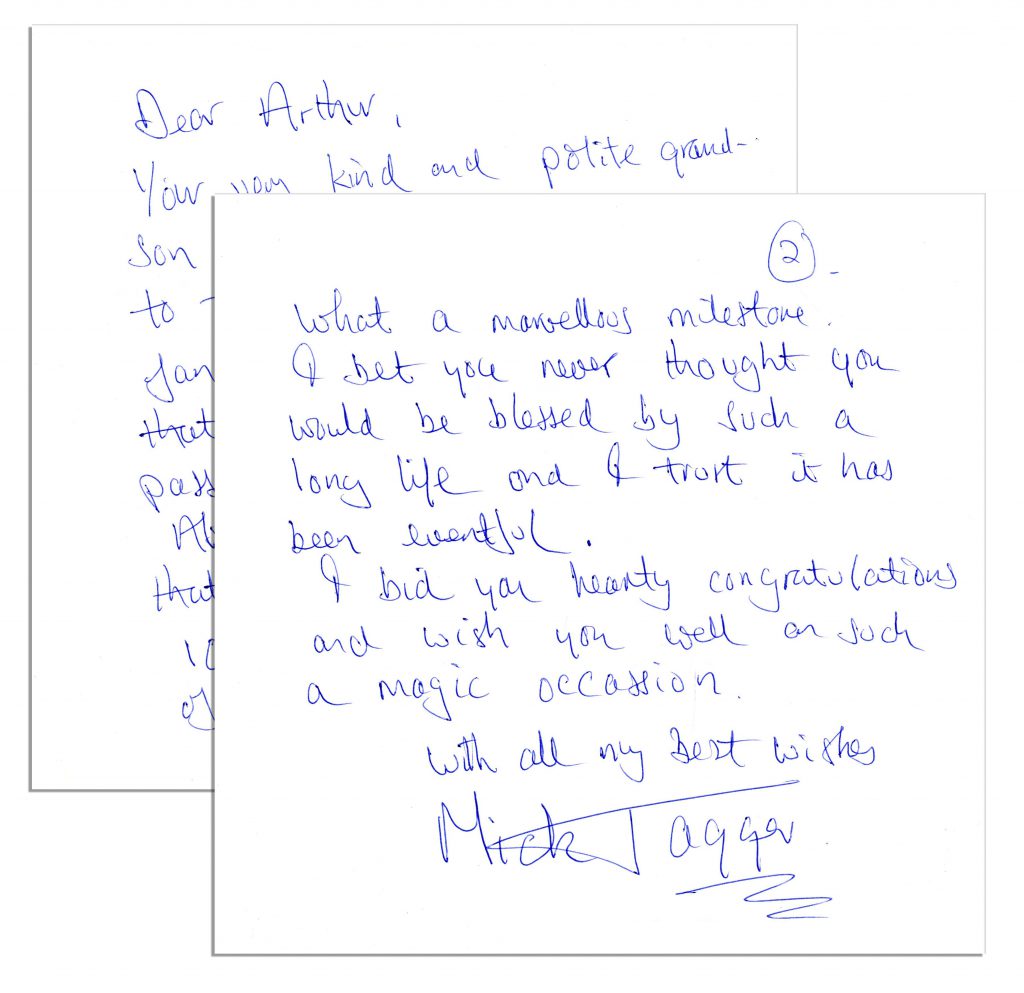 Dear Arthur,
Your very kind and polite grand-
son
to
Jan
that
pass
that
10
of
2
What a marvellous milestone.
I bet you never thought you
would be blessed by such a
long life and I trust it has
been eventful.
I bid you hearty congratulations
and wish you well on such
a magic occassion.
with all my best wishes
Mick Jagger